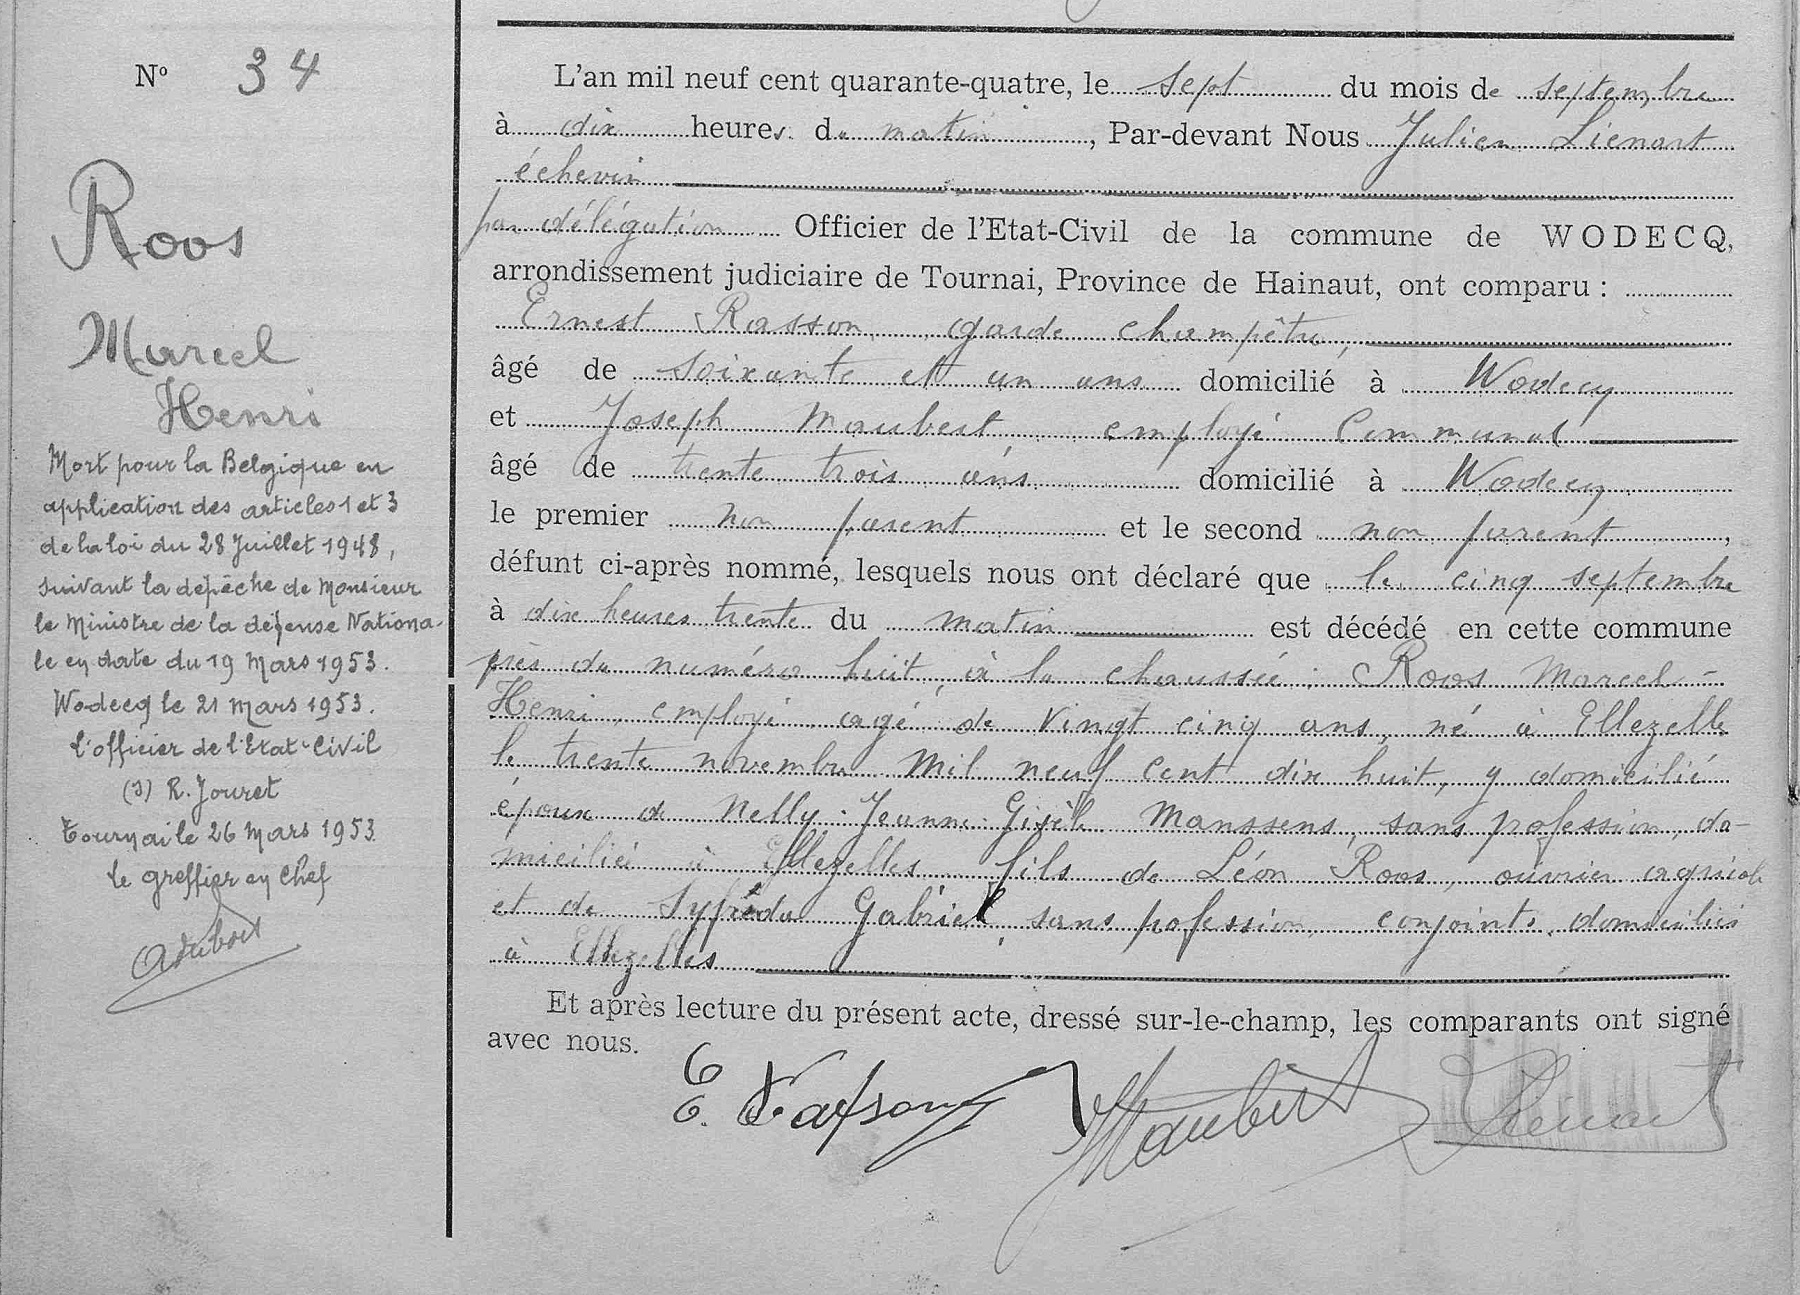 N° 34
Roos
Marcel
Henri
Mort pour la Belgique en
application des articles 1 et 3
de la loi du 28 Juillet 1948,
suivant la dépêche de Monsieur
le Ministre de la défense Nationa-
le en date du 19 Mars 1953.
Wodecq le 21 mars 1953.
l'officier de l'Etat-Civil
(s) R. Jouret
Tournai le 26 Mars 1953
le greffier en Chef
L'an mil neuf cent quarante-quatre, le sept du mois de septembre
à dix heures du matin, Par-devant Nous Julien Lienart
échevin
par délégation Officier de l'Etat-Civil de la commune de WODECQ,
arrondissement judiciaire de Tournai, Province de Hainaut, ont comparu :
Ernest Rasson, garde champêtre,
âgé de soixante et un ans domicilié à Wodecq
et Joseph Maubert employé Communal
âgé de trente trois ans domicilié à Wodecq
le premier non parent et le second non parent,
défunt ci-après nommé, lesquels nous ont déclaré que le cinq septembre
à dix heures trente du matin est décédé en cette commune
près du numéro huit, à la chaussée : Roos Marcel-
Henri, employé âgé de vingt cinq ans, né à Ellezelles
le trente novembre mil neuf cent dix huit, y domicilié
époux de Nelly-Jeanne-Gisèle Manssens, sans profession, do
miciliée à Ellezelles fils de Léon Roos, ouvrier agricole
et de Gabriel, sans pofession, conjoints, domiciliés
à Ellezelles
Et après lecture du présent acte, dressé sur-le-champ, les comparants ont signé
avec nous.
E. Rasson Maubert Lienart